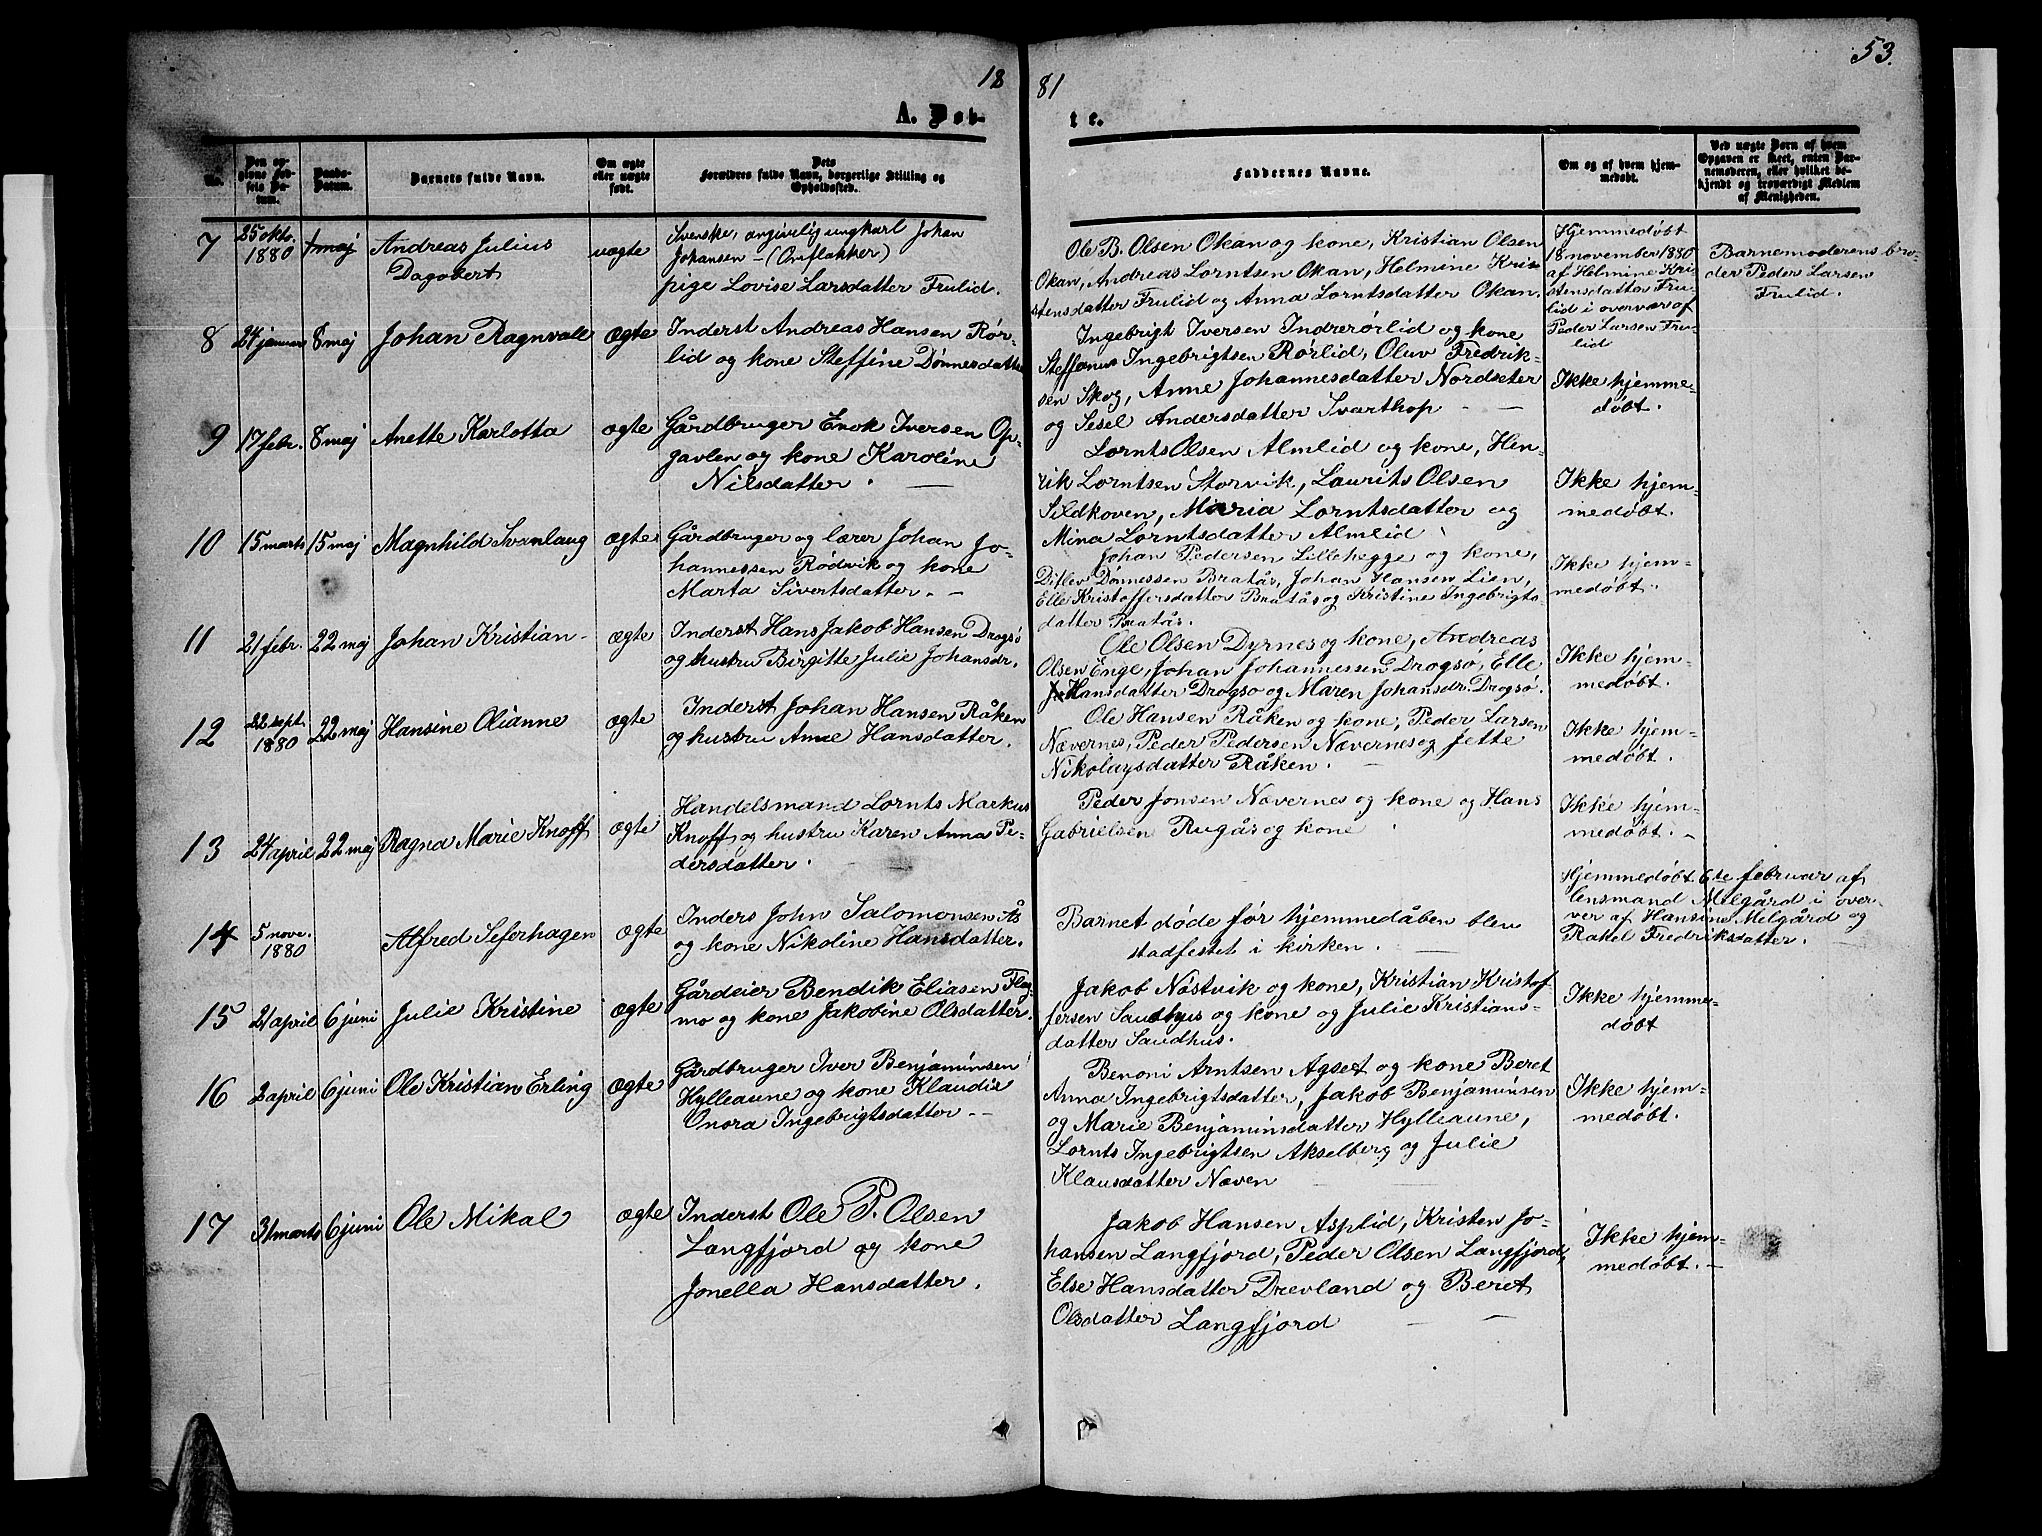 18
81
53.
A. Døb-
te.
No.
Den op-
givne Fød-
sels Da-
tum.
Daabs-
Datum.
Barnets fulde Navn.
Om ægte
eller uægte
født.
Dets
Forældres fulde Navn, borgerlige Stilling og
Opholdssted.
Faddernes Navne.
Om og af hvem hjem-
medøbt.
Ved uægte Børn af hvem
Opgaven er skeet, enten Bar-
nemoderen, eller hvilket be-
kjendt og troværdigt Medlem
af Menigheden.
7
25 okto.
1880
1 maj
Andreas Julius
Dagobert
uægte
Svenske, angivelig ungkarl Johan
Johansen - (Omflakker)
pige Lovise Larsdatter Frulid.
Ole B. Olsen Okan og kone, Kristian Olsen
Okan, Andreas Lorntsen Okan, Helmine Kris
stensdatter Frulid og Anna Lorntsdatter Okan.
Hjemmedøbt
18 november 1880
af Helmine Kri
stensdatter Fru-
lid i overvær af
Peder Larsen Fru-
lid
Barnemoderens bro-
der Peder Larsen
Frulid.
8
24 januar
8 maj
Johan Ragnvald
ægte
Inderst Andreas Hansen Rör-
lid og kone Steffine Dönnesdatter
Ingebrigt Iversen Indrerörlid og kone
Steffanus Ingebrigtsen Rörlid, Oluv Fredrik-
sen Skog, Anne Johannesdatter Nordseter
og Sesel Andersdatter Svarthop - -
Ikke hjemme-
døbt.
9
17 febr.
8 maj
Anette Karlotta
ægte
Gårdbruger Enok Iversen Op-
gavlen og kone Karoline
Nilsdatter. -
Lornts Olsen Almlid og kone, Hen-
rik Lorntsen Storvik, Laurits Olsen
Sildkoven, Maria Lorntsdatter og
Mina Lorntsdatter Almlid
Ikke hjem-
medøbt.
10
15 marts
15 maj
Magnhild Svanlaug
ægte
Gårdbruger og lærer Johan Jo-
hannessen Rödvik og kone
Marta Sivertsdatter. -
Johan Pedersen Lillehegge og kone,
Ditlev Dönnessen Bratås, Johan Hansen Lien,
Elle Kristoffersdatter Bratås og Kristine Ingebrigts-
datter Bratås.
Ikke hjem-
medøbt.
11
21 febr.
22 maj
Johan Kristian
ægte
Inderst Hans Jakob Hansen Drogsö
og hustru Birgitte Julie Johansdr.
Ole Olsen Dyrnes og kone, Andreas
Olsen Enge, Johan Johannessen Drogsö, Elle
Hansdatter Drogsö og Maren Johansdr. Drogsö.
Ikke hjem-
medøbt.
12
22 sept.
1880
22 maj
Hansine Olianne
ægte
Inderst Johan Hansen Råken
og hustru Anne Hansdatter.
Ole Hansen Råken og kone, Peder Larsen
Nævernes, Peder Pedersen Nævernes og Jette
Nikolaysdatter Råken.
Ikke hjem-
medøbt.
13
24 april
22 maj
Ragna Marie Knoff
ægte
Handelsmand Lornts Markus
Knoff og hustru Karen Anna Pe-
dersdatter.
Peder Jonsen Nævernes og kone og Hans
Gabrielsen Rugås og kone
Ikke hjem-
medøbt. -
14
5 nove.
1880
Alfred Seferhagen
ægte
Inders John Salomonsen Ås
og kone Nikoline Hansdatter.
Barnet døde før hjemmedåben blev
stadfestet i kirken. -
Hjemmedøbt 6te februar af
lensmand Melgård i over-
vær af Hansine Melgård og
Rakel Fredriksdatter.
15
21 april
6 juni
Julie Kristine
ægte
Gårdeier Bendik Eliasen Flag
mo og kone Jakobine Olsdatter.
Jakob Nästvik og kone, Kristian Kristof-
fersen Saudhus og kone og Julie Kristians-
datter Saudhus.
Ikke hjemme-
døbt
16
2 april
6 juni
Ole Kristian Erling
ægte
Gårdbruger Iver Benjaminsen
Hylleaune og kone Klaudie
Onora Ingebrigtsdatter --
Benoni Arntsen Agset og kone Beret
Anna Ingebrigtsdatter, Jakob Benjaminsen
og Marie Benjaminsdatter Hylleaune,
Lornts Ingebrigtsen Akselberg og Julie
Klausdatter Næven
Ikke hjem-
medøbt.
17
31 marts
6 juni
Ole Mikal
ægte
Inderst Ole P. Olsen
Langfjord og kone
Jonella Hansdatter.
Jakob Hansen Asplid, Kristen Jo-
hansen Langfjord, Peder Olsen Langfjord,
Else Hansdatter Drevland og Beret
Olsdatter Langfjord
Ikke hjem-
medøbt. -